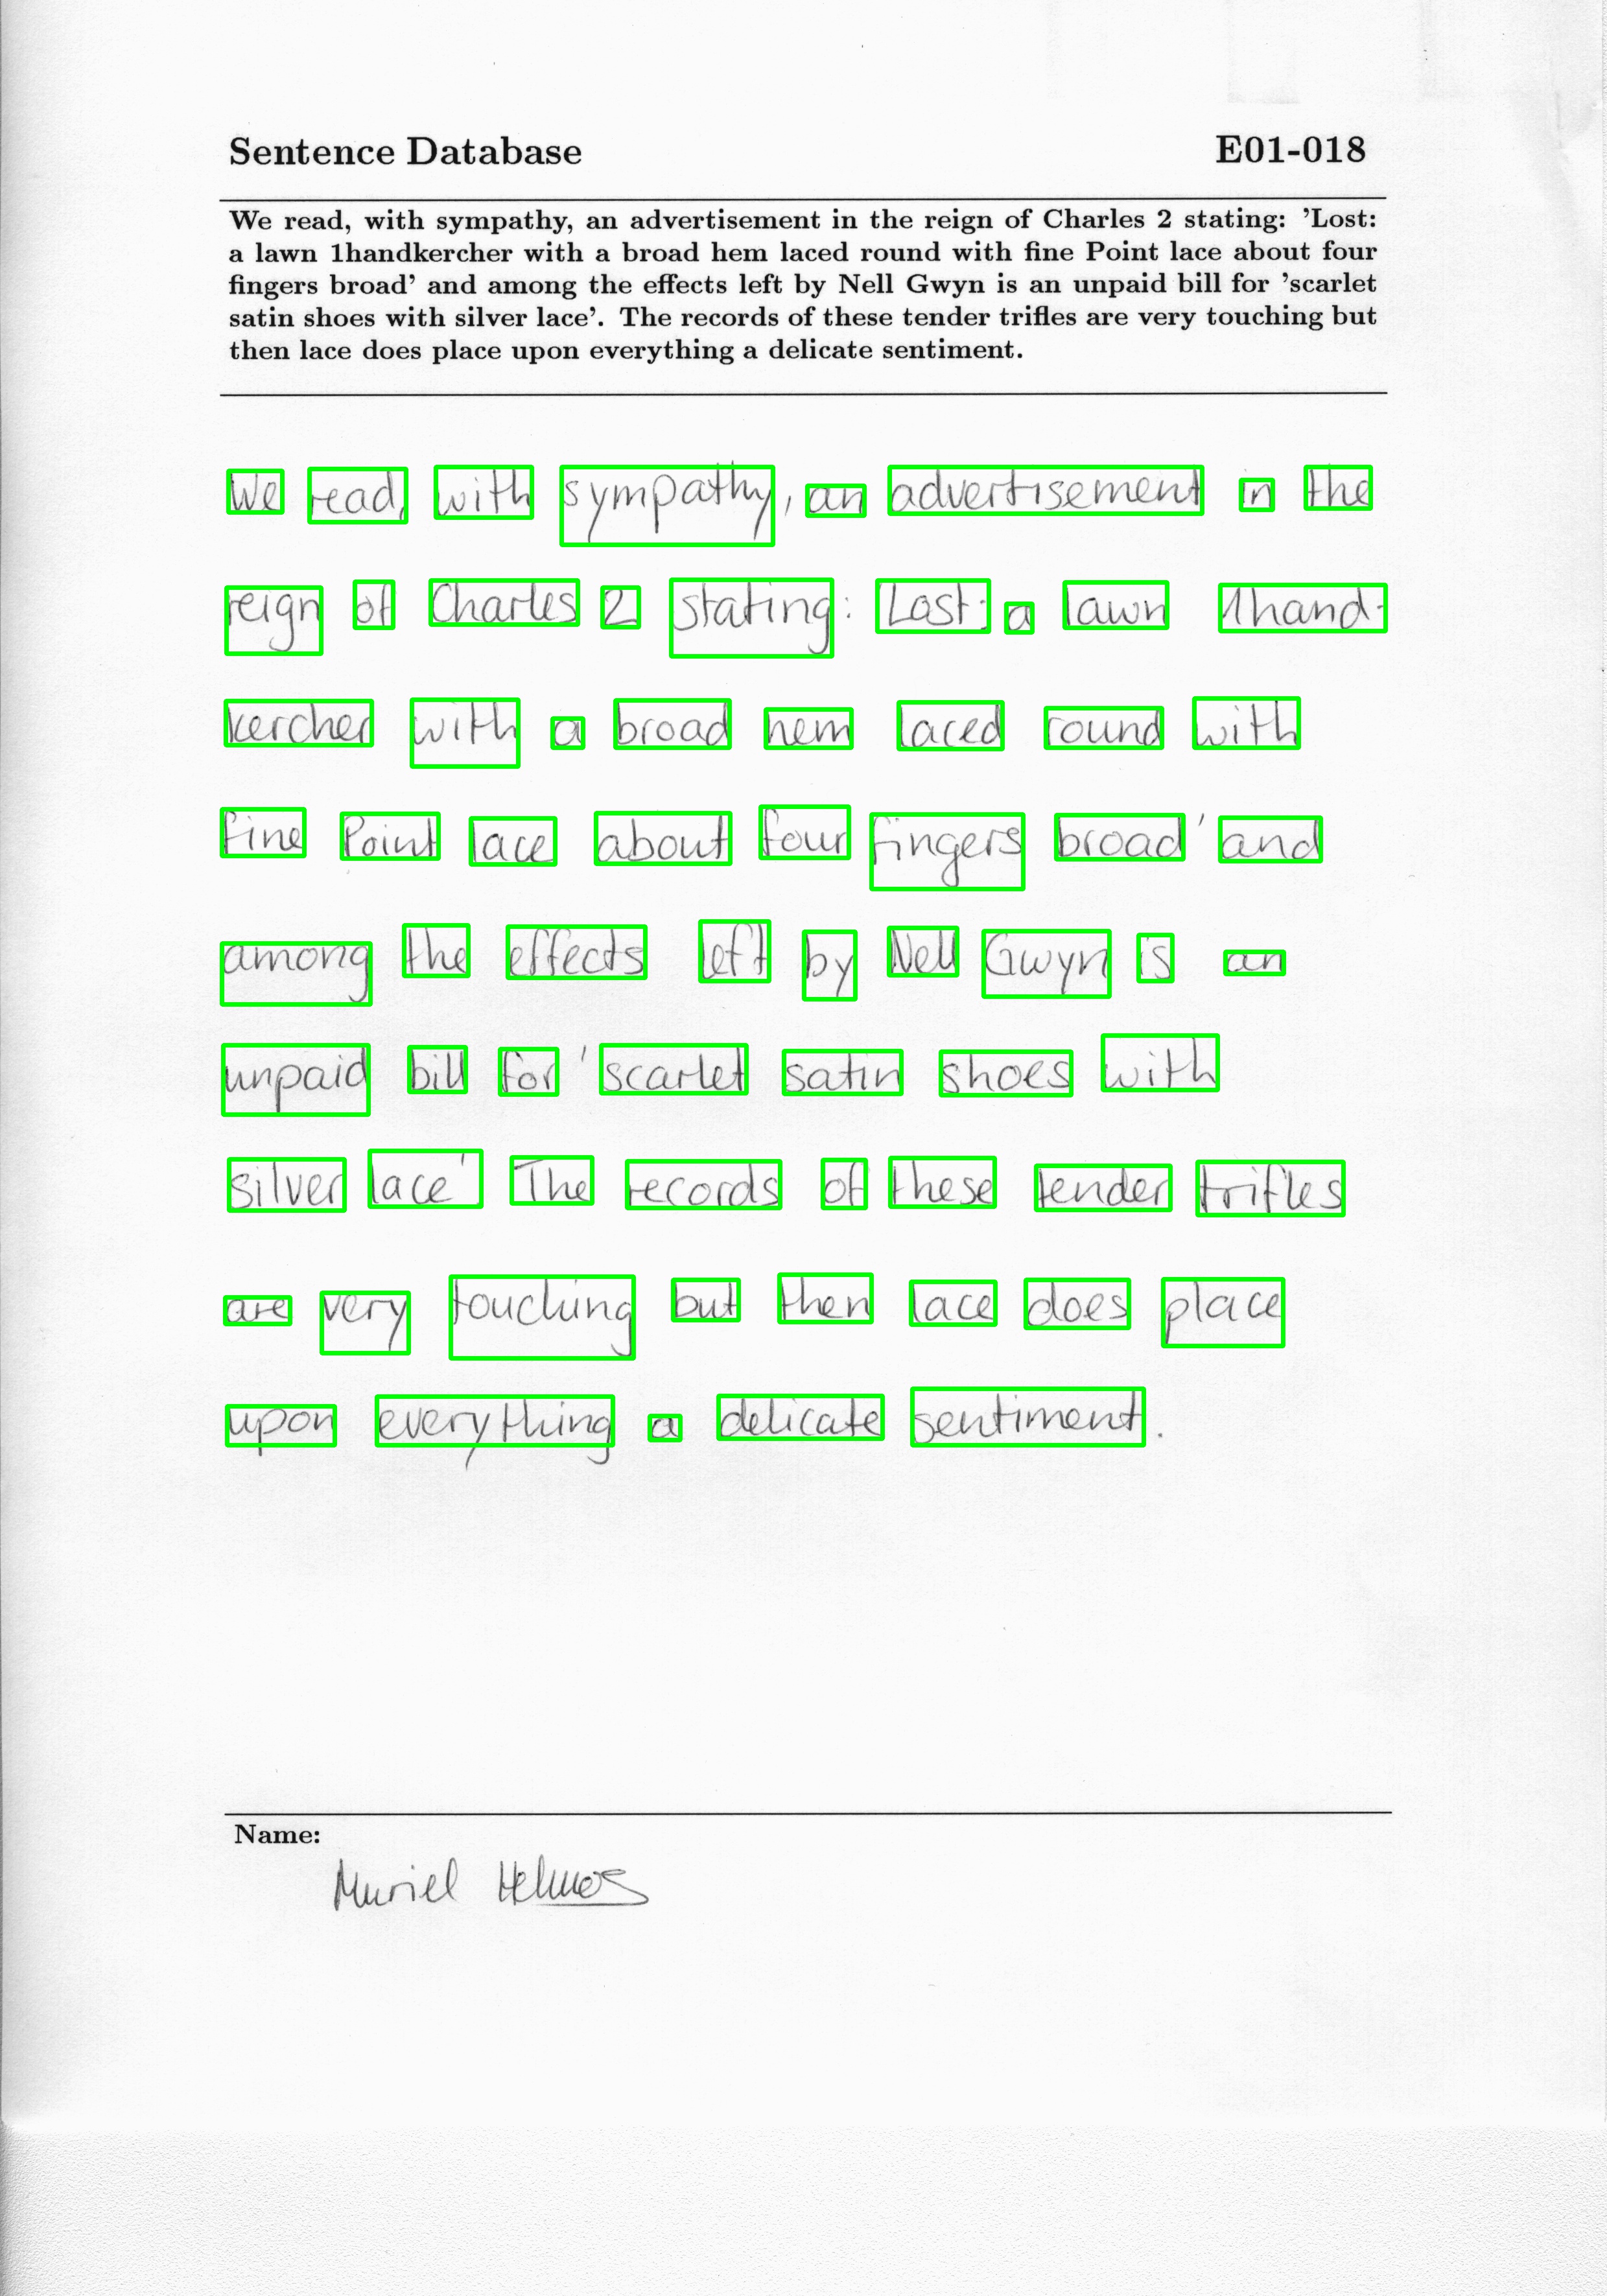 Sentence Database E01-018
We read, with sympathy, an advertisement in the reign of Charles 2 stating: 'Lost:
a lawn 1handkercher with a broad hem laced round with fine Point lace about four
fingers broad' and among the effects left by Nell Gwyn is an unpaid bill for 'scarlet
satin shoes with silver lace'. The records of these tender trifles are very touching but
then lace does place upon everything a delicate sentiment.
We read, with sympathy, an advertisement in the
reign of Charles 2 stating: 'Lost: a lawn 1hand-
kercher with a broad hem laced round with
fine Point lace about four fingers broad' and
among the effects left by Nell Gwyn is an
unpaid bill for 'scarlet satin shoes with
silver lace' The records of these tender trifles
are very touching but then lace does place
upon everything a delicate sentiment.
Name:
Muriel